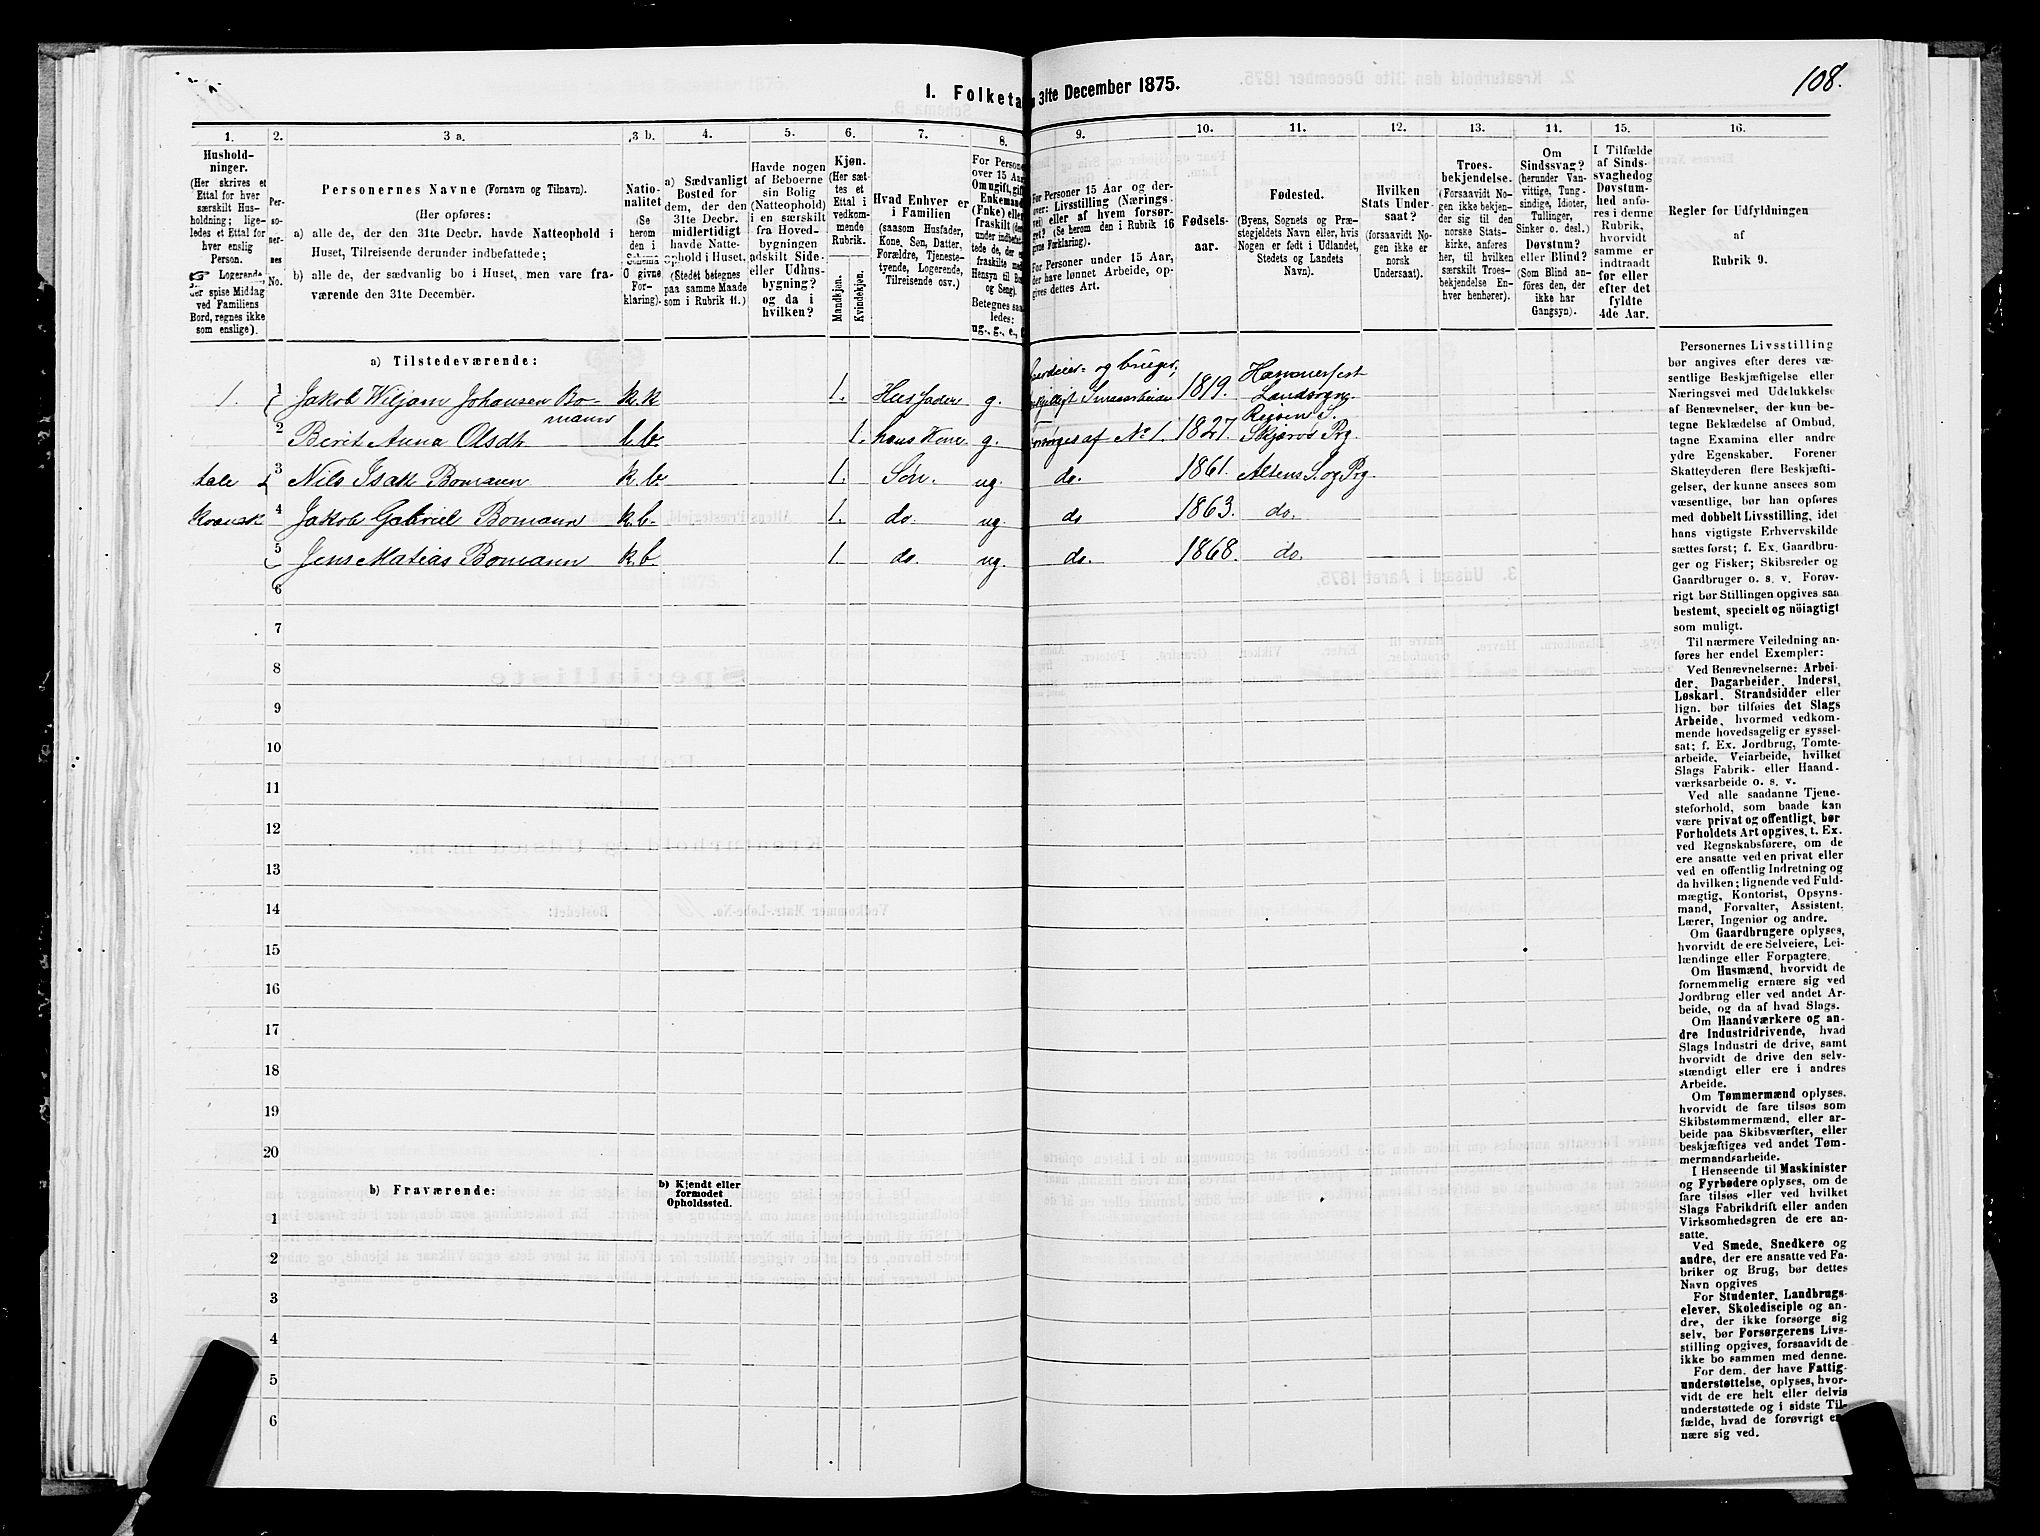 108.
1. Folketa
31te December 1875.
1. 2. 3 a. 3 b. 4. 5. 6. 7. 8. 9. 10. 11. 12. 13. 14. 15. 16.
Hushold-
ninger.
(Her skrives et
Ettal for hver
særskilt Hus-
holdning; lige-
ledes et Ettal for
hver enslig
Person.
☞ Logerende,
der spise Middag
ved Familiens
Bord, regnes ikke
som enslige).
Per-
so-
ner-
nes
No.
Personernes Navne (Fornavn og Tilnavn).
(Her opføres:
a) alle de, der den 31te Decbr. havde Natteophold i
Huset, Tilreisende derunder indbefattede;
b) alle de, der sædvanlig bo i Huset, men vare fra-
værende den 31te December.
Natio-
nalitet
(Se
herom
den i
Schema
O givne
For-
klaring).
a) Sædvanligt
Bosted for
dem, der den
31te Decbr.
midlertidigt
havde Natte-
ophold i Huset.
(Stedet betegnes
paa samme Maade
som i Rubrik 11.)
Havde nogen
af Beboerne
sin Bolig
(Natteophold)
i en særskilt
fra Hoved-
bygningen
adskilt Side-
eller Udhus-
bygning?
og da i
hvilken?
Kjøn.
(Her sæt-
tes et
Ettal i
vedkom-
mende
Rubrik.
Mandkjøn.
Kvindekjøn.
Hvad Enhver er
i Familien
(saasom Husfader,
Kone, Søn, Datter,
Forældre, Tjeneste-
tyende, Logerende,
Tilreisende osv.)
For Persone
over 15 Aar
Om ugift, gift
Enkemand
(Fnke) eller
fraskilt (de
under indbefat-
tede de, der e
fraskilte me
Hensyn til Bo
og Seng).
Betegnes saa
ledes:
ug., g., e.,
For Personer 15 Aar og der-
over: Livsstilling (Nærings-
vei) eller af hvem forsør-
get? (Se herom den i Rubrik 16
givne Forklaring).
For Personer under 15 Aar,
der have lønnet Arbeide, op-
gives dettes Art.
Fødsels-
aar.
Fødested.
(Byens, Sognets og Præ-
stegjeldets Navn eller, hvis
Nogen er født i Udlandet,
Stedets og Landets
Navn).
Hvilken
Stats Under-
saat?
(forsaavidt No-
gen ikke er
norsk
Undersaat).
Troes-
bekjendelse.
(Forsaavidt No-
gen ikke bekjen-
der sig til den
norske Stats-
kirke, anføres
her, til hvilken
særskilt Troes-
bekjendelse En-
hver henhører).
Om
Sindssvag?
(herunder Van-
vittige, Tung-
sindige, Idioter,
Tullinger,
Sinker o. desl.)
Døvstum?
eller Blind?
(Som Blind an-
føres den, der
ikke har
Gangsyn).
I Tilfælde
af Sinds-
svaghed og
Døvstum-
hed anfø-
res i denne
Rubrik,
hvorvidt
samme er
indtraadt
før eller
efter det
fyldte
4de Aar.
Regler for Udfyldningen
af
Rubrik 9.
a) Tilstedeværende:
1. 1 Jakob Wiljam Johansen Bo-mann k.k 1. Husfader g. og bruger, 1819. Hammerfest Landsogn.
2 Berit Anna Olsdt 1. hans Kone g. af No 1. 1827. Reisen S. Skjervø Prg.
3 Nils Isak Bomann 1. Søn. ug. do. 1861. Altens S. og Prg.
4 Jakob Gabriel Bomann k.b. 1. do. ug. do 1863. do.
5 Jens Matias Bomann k.b. 1. do. ug. do. 1868. do.
6
7
8
9
10
11
12
13
14
15
16
17
18
19
20
b) Fraværende:
b) Kjendt eller
formodet
Opholdssted.
1
2
3
4
5
6
Personernes Livsstilling
bør angives efter deres væ-
sentlige Beskjæftigelse eller
Næringsvei med Udelukkelse
af Benævnelser, der kun be-
tegne Beklædelse af Ombud,
tagne Examina eller andre
ydre Egenskaber. Forener
Skatteyderen flere Beskjæfti-
gelser, der kunne ansees som
væsentlige, bør han opføres
med dobbelt Livsstilling, idet
hans vigtigste Erhvervskilde
sættes først; f. Ex. Gaardbru-
ger og Fisker; Skibsreder og
Gaardbruger o. s. v. Forøv-
rigt bør Stillingen opgives saa
bestemt, specielt og nöiagtigt
som muligt.
Til nærmere Veiledning an-
føres her endel Exempler:
Ved Benævnelserne: Arbei-
der, Dagarbeider, Inderst,
Løskarl, Strandsidder eller
lign. bør tilføies det Slags
Arbeide, hvormed vedkom-
mende hovedsagelig er syssel-
sat; f. Ex. Jordbrug, Tomte-
arbeide, Veiarbeide, hvilket
Slags Fabrik- eller Haand-
værksarbeide o. s. v.
Ved alle saadanne Tjene-
steforhold, som baade kan
være privat og offentligt, bør
Forholdets Art opgives, t. Ex.
ved Regnskabsførere, om de
ere ansatte ved en privat eller
ved en offentlig Indretning og
da hvilken; lignende ved Fuld-
mægtig, Kontorist, Opsyns-
mand, Forvalter, Assistent,
Lærer, Ingeniør og andre.
Om Gaardbrugere oplyses,
hvorvidt de ere Selveiere, Lei-
lændinge eller Forpagtere.
Om Husmænd, hvorvidt de
fornemmelig ernære sig ved
Jordbrug eller ved andet Ar-
beide, og da af hvad Slags.
Om Haandværkere og an-
dre Industridrivende, hvad
Slags Industri de drive, samt
hvorvidt de drive den selv-
stændigt eller ere i andres
Arbeide.
Om Tømmermænd oplyses,
hvorvidt de fare tilsøs som
Skibstømmermænd, eller ar-
beide paa Skibsværfter, eller
beskjæftiges ved andet Tøm-
mermandsarbeide.
I Henseende til Maskinister
og Fyrbødere oplyses, om de
fare tilsøs eller ved hvilket
Slags Fabrikdrift eller anden
Virksomhedsgren de ere an-
satte.
Ved Smede, Snedkere og
andre, der ere ansatte ved Fa-
briker og Brug, bør dettes
Navn opgives
For Studenter, Landbrugs-
elever, Skoledisciple og an-
dre, der ikke forsørge sig
selv, bør Forsørgerens Livs-
stilling opgives, forsaavidt de
ikke bo sammen med denne.
For dem, der have Fattig-
understøttelse, oplyses, hvor-
vidt de ere helt eller delvis
understøttede og i sidste Til-
fælde, hvad de forøvrigt er-
nære sig ved.